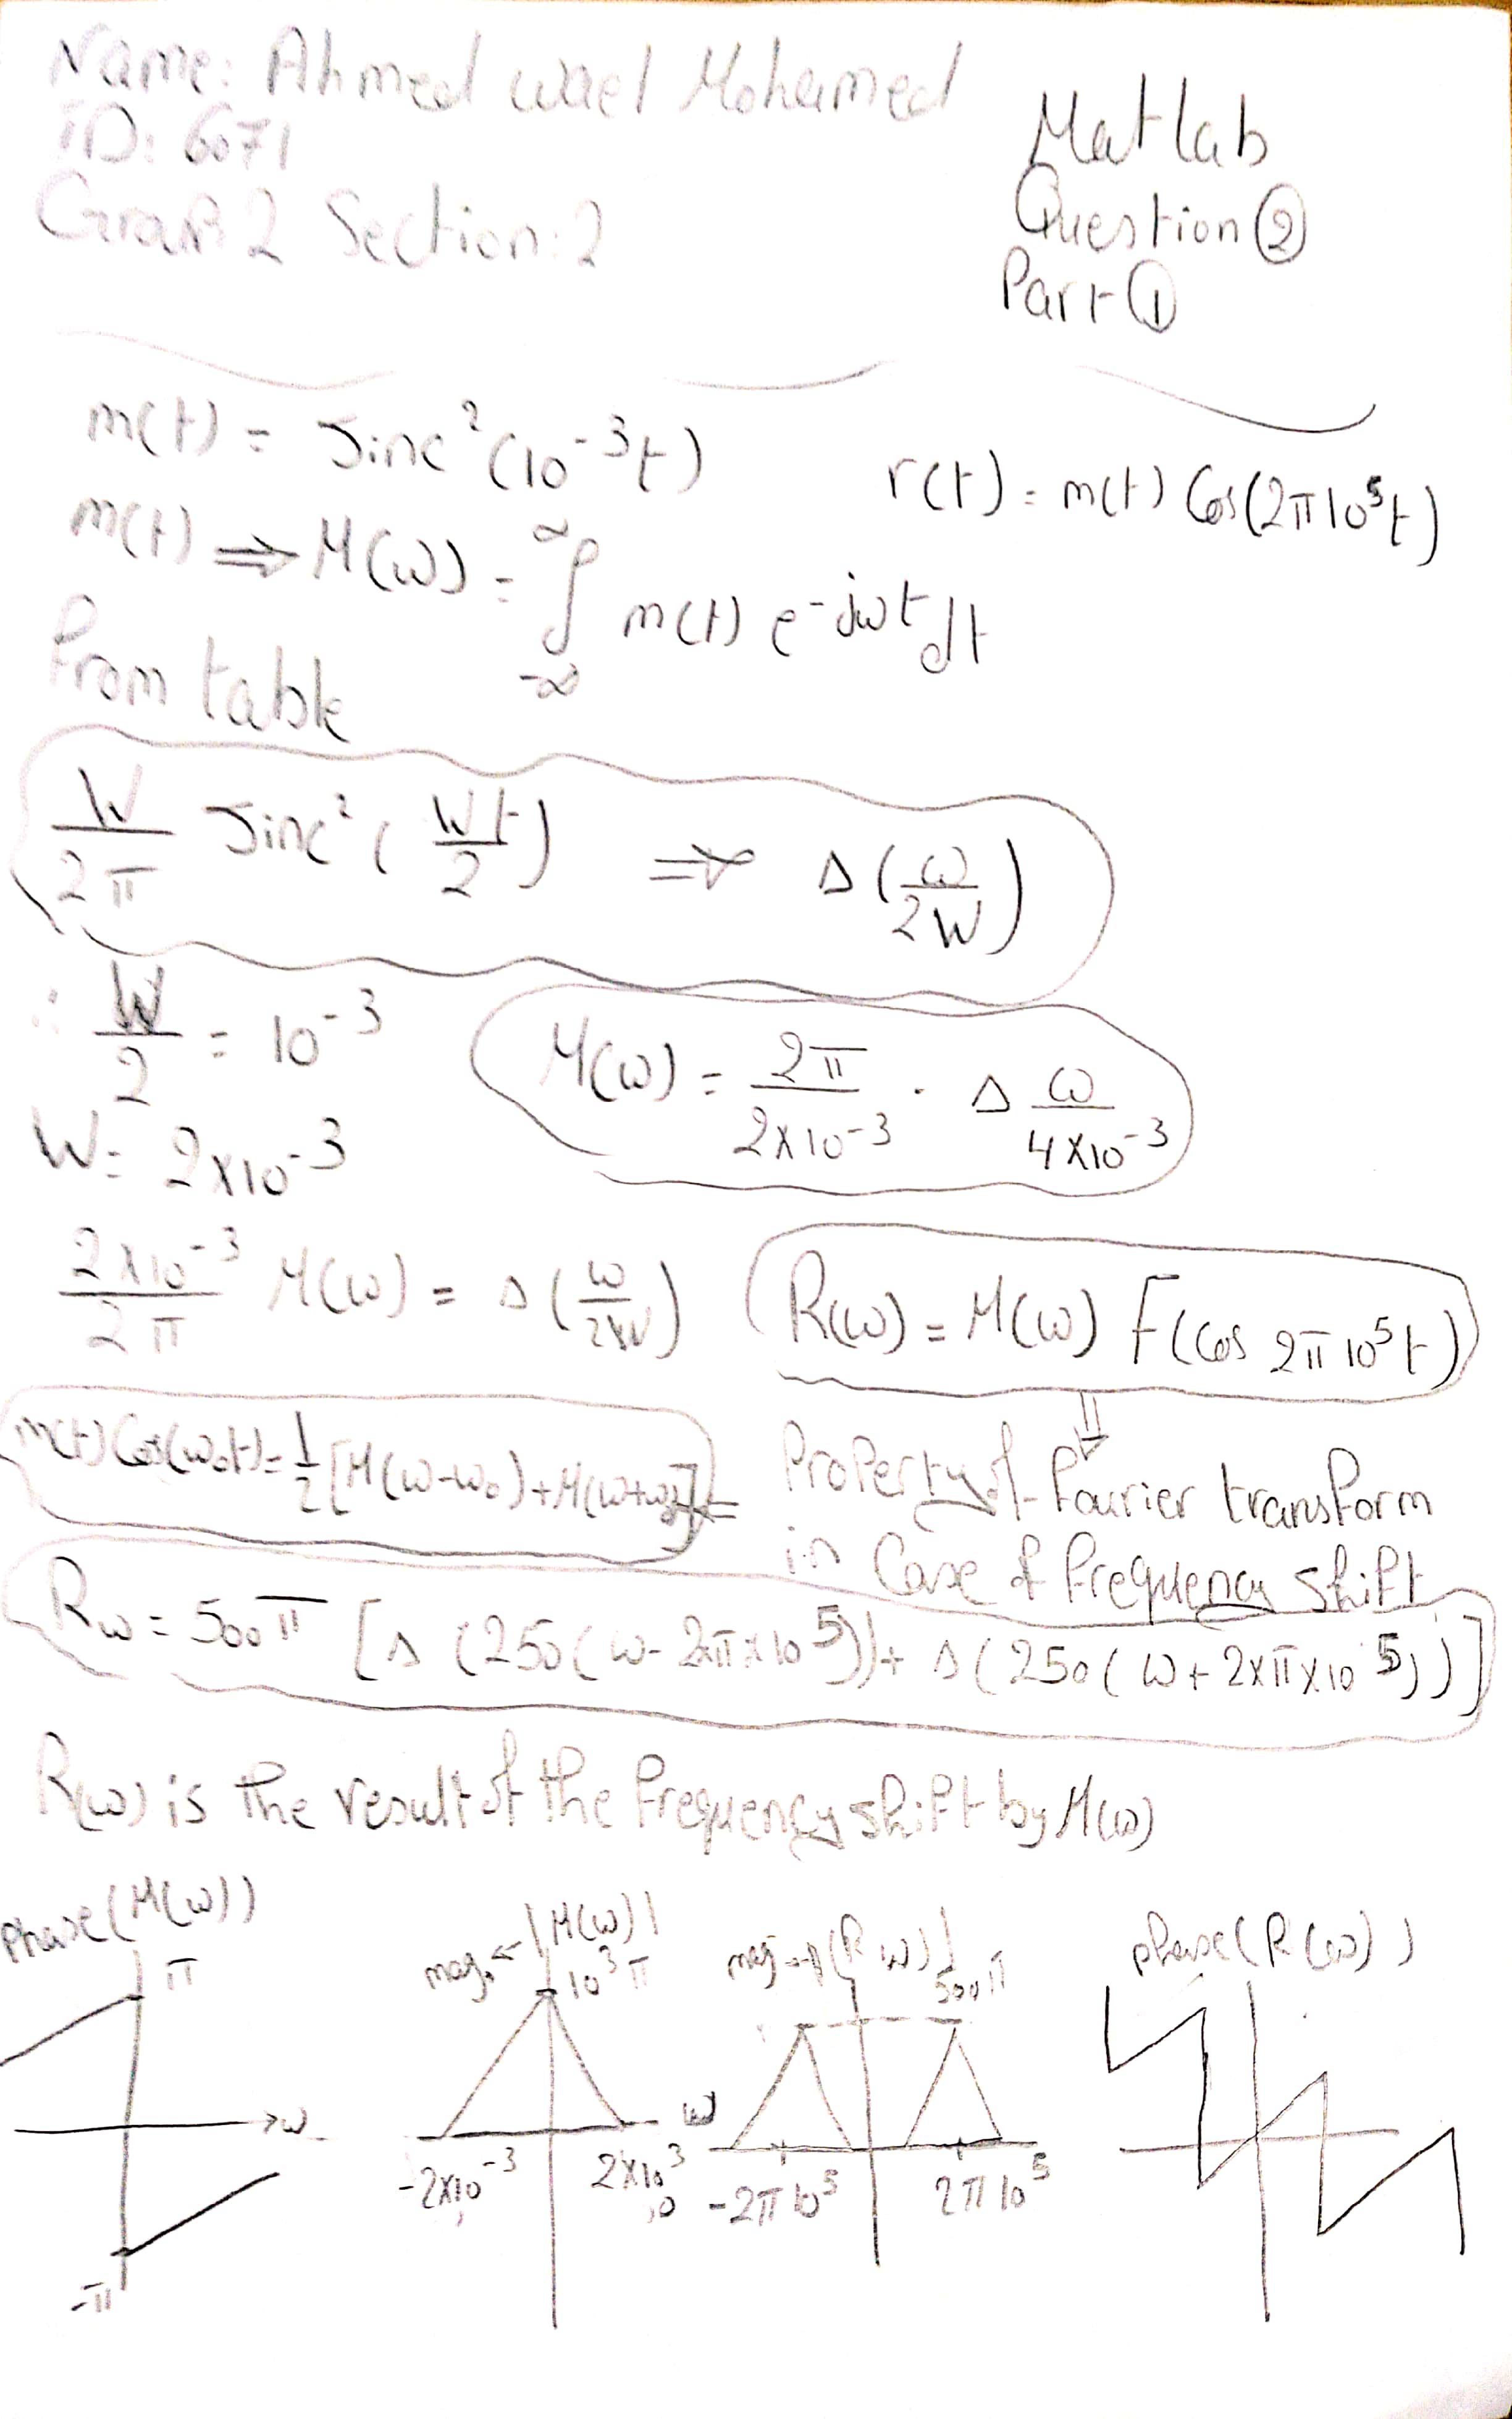 Name: Ahmed wael Mohamed
ID: 6071
Group: 2 Section: 2
Matlab
Question ②
Part ①
m(t) = Sinc²(10⁻³t)
r(t) = m(t) Cos(2π10⁵t)
m(t) ⇒ M(ω) = ∫_{-∞}^{∞} m(t) e^{-jωt} dt
From table
W/2π Sinc²(Wt/2) ⇒ Δ(ω/2W)
∴ W/2 = 10⁻³
M(ω) = 2π/2×10⁻³ . Δ ω/4×10⁻³
W = 2×10⁻³
2×10⁻³/2π M(ω) = Δ(ω/2W)
R(ω) = M(ω) F(Cos 2π10⁵t)
⇓
m(t) Cos(ω₀t) = 1/2 [M(ω-ω₀) + M(ω+ω₀)] ⇐
Property of Fourier transform
in Case of frequency shift
Rω = 500π [Δ(250(ω-2π×10⁵)) + Δ(250(ω+2×π×10⁵))]
R(ω) is the result of the frequency shift by M(ω)
Phase(M(ω))
π
→ω
-π
mag. ← |M(ω)|
10³π
-2×10⁻³
2×10⁻³
ω
mag → |(R ω)|
500π
-2π10⁵
2π10⁵
phase(R(ω))